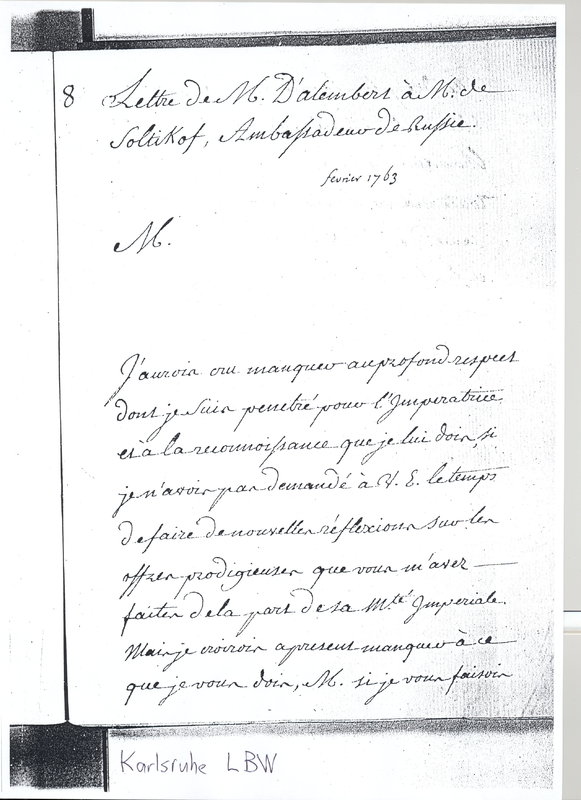 8 Lettre de M. D'alembert à M. de
Soltikof, Ambassadeur de Russie.
fevrier 1763
M.
J'aurois cru manquer au profond respect
dont je suis penetré pour l'Imperatrice
et à la reconnoissance que je lui dois, si
je n'avois pas demandé à V. E. le temps
de faire de nouvelles réflexions sur les
offres prodigieuses que vous m'avez
faites de la part de sa Mté Imperiale.
Mais je croirois apresent manquer à ce
que je vous dois, M. si je vous faisois
Karlsruhe LBW